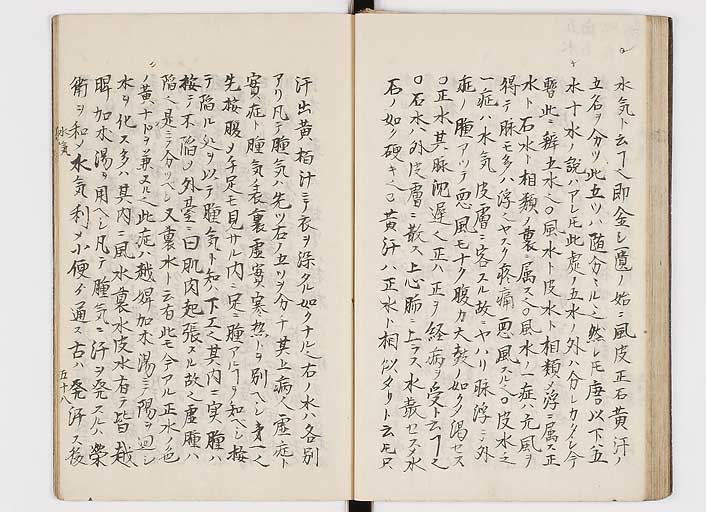 水気ト云フヿ也即金シ匱ノ始ニ風皮正石黄汗ノ
五名ヲ分ツ此五ツハ随分ミルシ然レモ唐以下五
水十水ノ説ハアレモ此虚ノ五水ノ外ハ分レカタシ今
暫此ニ辨五水之〇風水ト皮水ト相類メ浮ニ属ス正
水ト石水ト相類メ裏ニ属ス之〇風水ノ一症ハ元風ヲ
得テ脉モ多ハ浮之ヤスク疼痛悪風スル之〇皮水之
一症ハ水気皮膚ニ客スル故ニヤハリ脉浮ニ外
症ノ腫アツテ悪風モナク腹カ大鼓ノ如ク渇セス
〇正水其脉沈遅之正ハ正ヲ経病ヲ受ト云フヿ之
〇石水ハ外皮膚ニ散ス上心肺ニ上ラス水散セスメ水
石ノ如ク硬キ之〇黄汗ハ正水ト相似タリト云モ只
汗出黄栢汁ニテ衣ヲ染タル如クナル之右ノ水ハ各別
アリ凡テ腫気ハ先ツ右ノ五ツヲ分チ其上病人虚症ト
實症ト腫気表裏虚實寒热トヲ別ヘシ第一之
先按腹メ手足モ見サル内ニ足ニ腫アルヿヲ知ヘシ按
テ陥ル処ヲ以テ腫気ト知ル下工之其内ニ実腫ハ
按テ不陥メ外䑓ニ曰肌肉起張スル故之虚腫ハ
陥之是ニテ分ツヘシ又裏水ト云有此モ今アル正水ノ色
ノ黄ナルヲ兼スル之此症ハ越婢加朮湯ニ陽ヲ廻シ
水ヲ化ス多ハ其内ニ風水裏水皮水有テ皆越
婢加朮湯ヲ用ヘシ凡テ腫気ニ汗ヲ発スルハ榮
衛ヲ和メ水気利メ小便ヲ通ス古ハ発汗ス後
水気
五十八